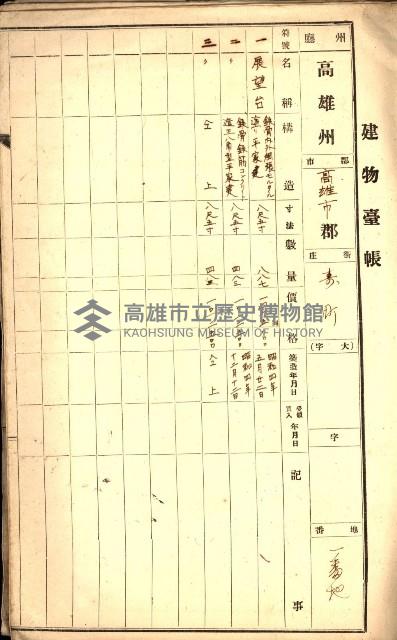 建物臺帳
州廳 高雄州 郡市 高雄市郡 街庄 壽町 (大字) 字 地番 一番地
符號 名稱 構造 寸法 數量 價格 築造年月日 受領買入年月日 記事
一 展望台 鉄骨内外 モルタル塗リ平家建 八尺五寸 八八七 昭和四年五月廿二日
二 〃 鉄骨鉄筋コンクリート造 八角型平家建 八尺五寸 四八三 昭和四年十二月十二日
三 〃 仝上 八尺五寸 四八三 仝上
高雄市立歷史博物館
KAOHSIUNG MUSEUM OF HISTORY